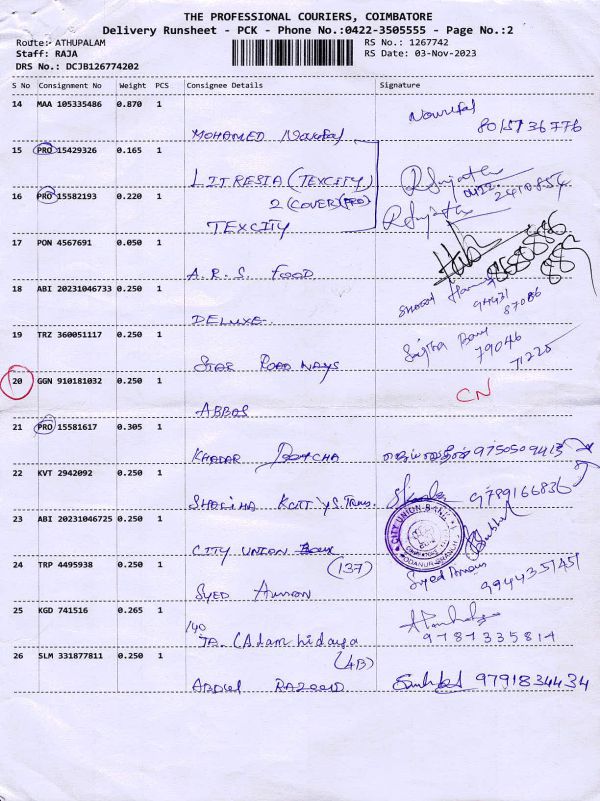 THE PROFESSIONAL COURIERS, COIMBATORE
Delivery Runsheet - PCK - Phone No.:0422-3505555 - Page No.:2
Route: ATHUPALAM
RS No.: 1267742
Staff: RAJA
RS Date: 03-Nov-2023
DRS No.: DCJB126774202
S No Consignment No Weight PCS Consignee Details Signature
14 MAA 105335486 0.870 1
MOHAMED Noufal
8015736776
15 PRO 15429326 0.165 1
LITRESIA (TEXCITY)
R Sujatha
0422 2410854
16 PRO 15582193 0.220 1
2 (COVER (PRO)
R Sujatha
TEXCITY
17 PON 4567691 0.050 1
A.R.S. FOOD
18 ABI 20231046733 0.250 1
DELUXE
94431
87086
19 TRZ 360051117 0.250 1
STAR ROADWAYS
79046
71220
20 GGN 910181032 0.250 1
CN
ABBAS
21 PRO 15581617 0.305 1
KHADAR BATCHA
9750509413
22 KVT 2942092 0.250 1
9789166836
23 ABI 20231046725 0.250 1
CITY UNION Bank
CITY UNION BANK
24 TRP 4495938 0.250 1
(137)
SYED
Syed
9944351451
25 KGD 741516 0.265 1
140
JA. (Adam hidaya
9787335814
26 SLM 331877811 0.250 1
(4B)
ABDUL
9791834434